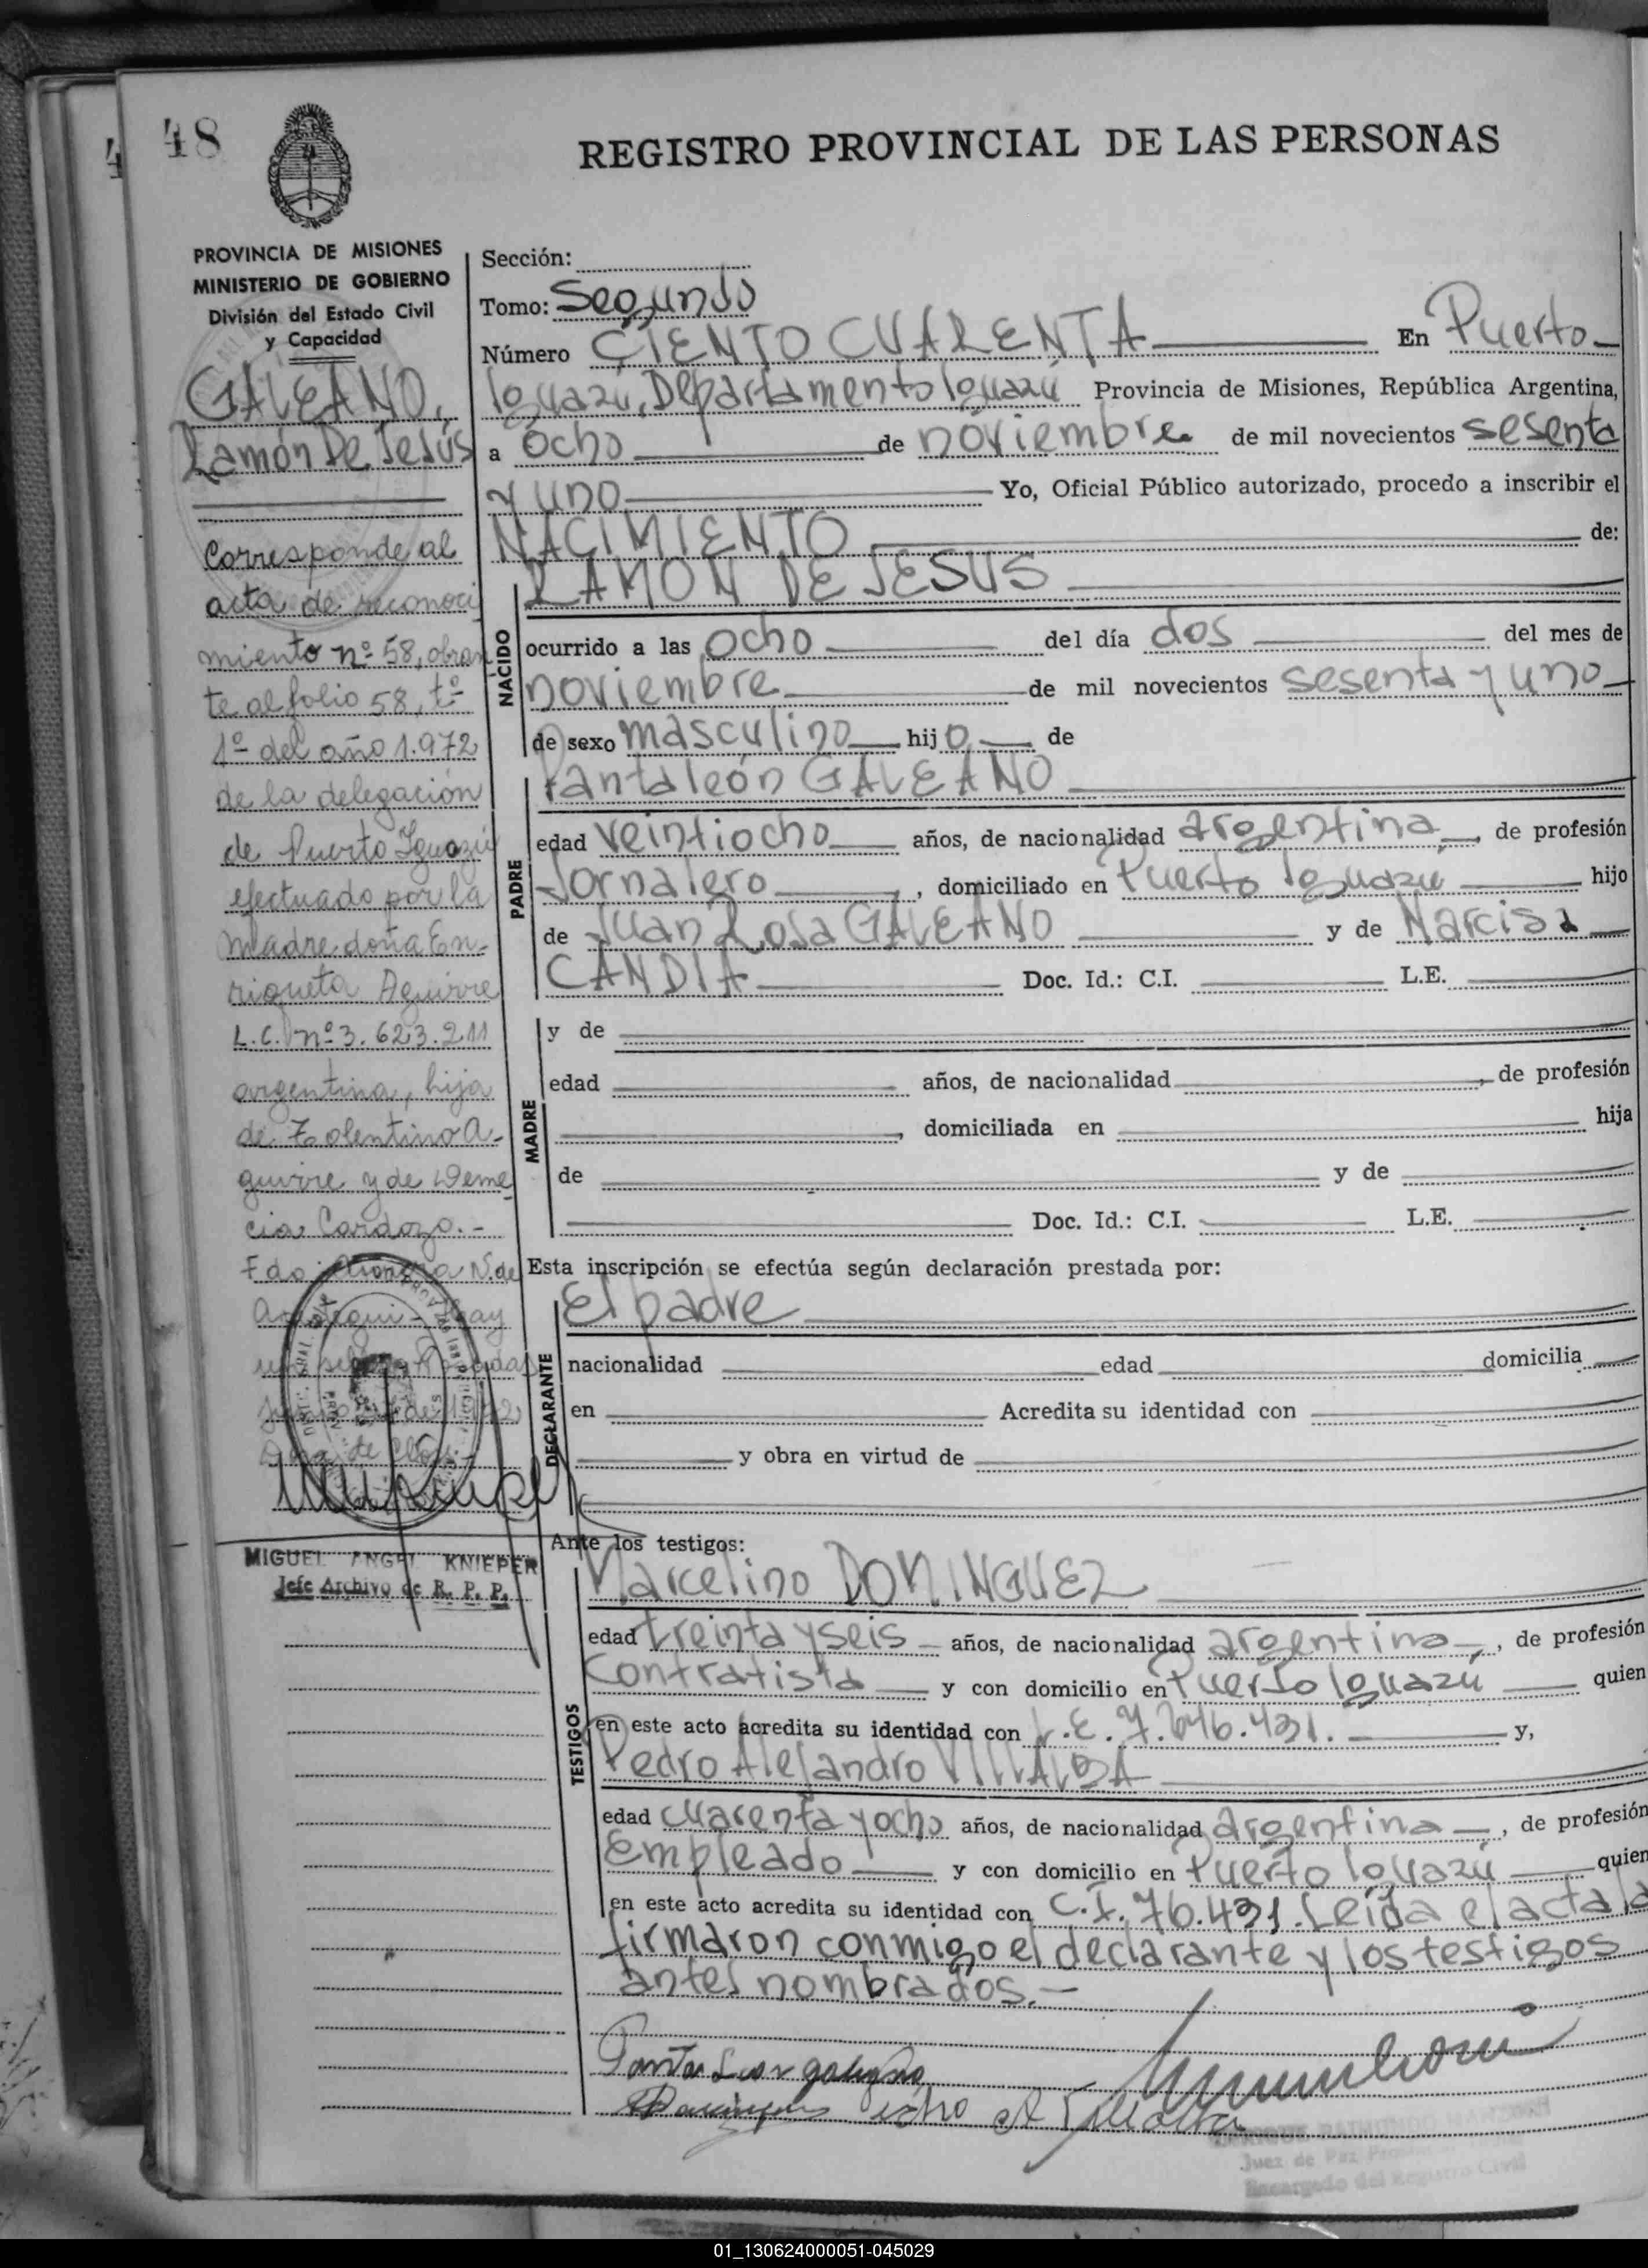 48
REGISTRO PROVINCIAL DE LAS PERSONAS
PROVINCIA DE MISIONES
MINISTERIO DE GOBIERNO
División del Estado Civil
y Capacidad
GALEANO,
Ramón De Jesús
Corresponde al
acta de reconoci
miento nº 58, obran
te al folio 58, tº
1º del año 1.972
de la delegación
de Puerto Iguazú
efectuado por la
madre doña En-
riqueta Aguirre
L.C. nº 3.623.211
argentina, hija
de Tolentino A-
guirre y de Deme
cia Cardozo.-
Fdo: N. de
MIGUEL ANGEL KNIEPER
Jefe Archivo de R. P. P.
Sección:
Tomo: Segundo
Número CIENTO CUARENTA En Puerto
Iguazú, Departamento Iguazú Provincia de Misiones, República Argentina,
a ocho de noviembre de mil novecientos sesenta
y uno Yo, Oficial Público autorizado, procedo a inscribir el
NACIMIENTO de:
NACIDO
RAMON DE JESUS
ocurrido a las ocho del día dos del mes de
noviembre de mil novecientos sesenta y uno
de sexo masculino hijo de
PADRE
Pantaleón GALEANO
edad veintiocho años, de nacionalidad argentina, de profesión
Jornalero, domiciliado en Puerto Iguazú hijo
de Juan Rosa GALEANO y de Narcisa
CANDIA Doc. Id.: C.I. L.E.
MADRE
y de
edad años, de nacionalidad , de profesión
, domiciliada en hija
de y de
Doc. Id.: C.I. L.E.
Esta inscripción se efectúa según declaración prestada por:
DECLARANTE
El padre
nacionalidad edad domicilia
en Acredita su identidad con
y obra en virtud de
Ante los testigos:
TESTIGOS
Marcelino DOMINGUEZ
edad treinta y seis años, de nacionalidad argentina, de profesión
Contratista y con domicilio en Puerto Iguazú quien
en este acto acredita su identidad con L.E. 7.646.431. y,
Pedro Alejandro VILLALBA
edad cuarenta y ocho años, de nacionalidad argentina, de profesión
Empleado y con domicilio en Puerto Iguazú quien
en este acto acredita su identidad con C.I. 76.431. Leída el acta la
firmaron conmigo el declarante y los testigos
antes nombrados.-
Juez de Paz
Encargado del Registro Civil
01_130624000051-045029